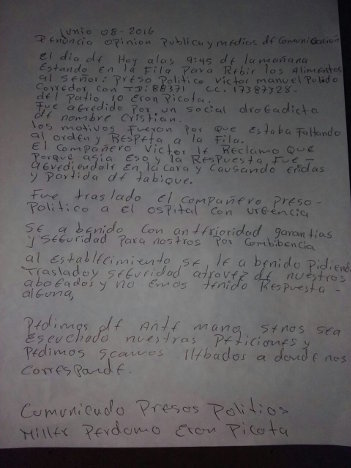 Junio 08-2016
Denuncia opinion Publica y medios de Comunicacion
El dia de Hoy alas 9:45 de la mañana
Estando en la Fila Para Resibir los Alimentos
al Señor: Preso Politico Victor manuel Pulido
Corredor con TD: 88371 CC. 17387328.
del Patio 10 Eron Picota.
Fue agredido Por un social drogadicta
de nombre Cristian.
los motivos Fueron Por que estaba Faltando
al orden y Respeta a la Fila.
El Compañero Victor le Reclamo Que
Porque asia Eso y la Respuesta Fue -
agrediendole en la Cara y Causando eridas
y Partida de tabique.
Fue traslado el Compañero Preso -
Politico a el ospital con urgencia
Se a benido con antFrioridad garantias
y Seguridad Para nostros Por Combibencia
al establecimiento se, le a benido Pidiendo
Traslado y Seguridad atravez de nuestros
abogados y no emos tenido Respuesta -
alguna,
Pedimos de Ante mano, Senos sea
Escuchado nuestras Peticiones y
Pedimos Seamos llebados a donde nos
Corresponde.
Comunicado Presos Politios
Miller Perdomo Eron Picota